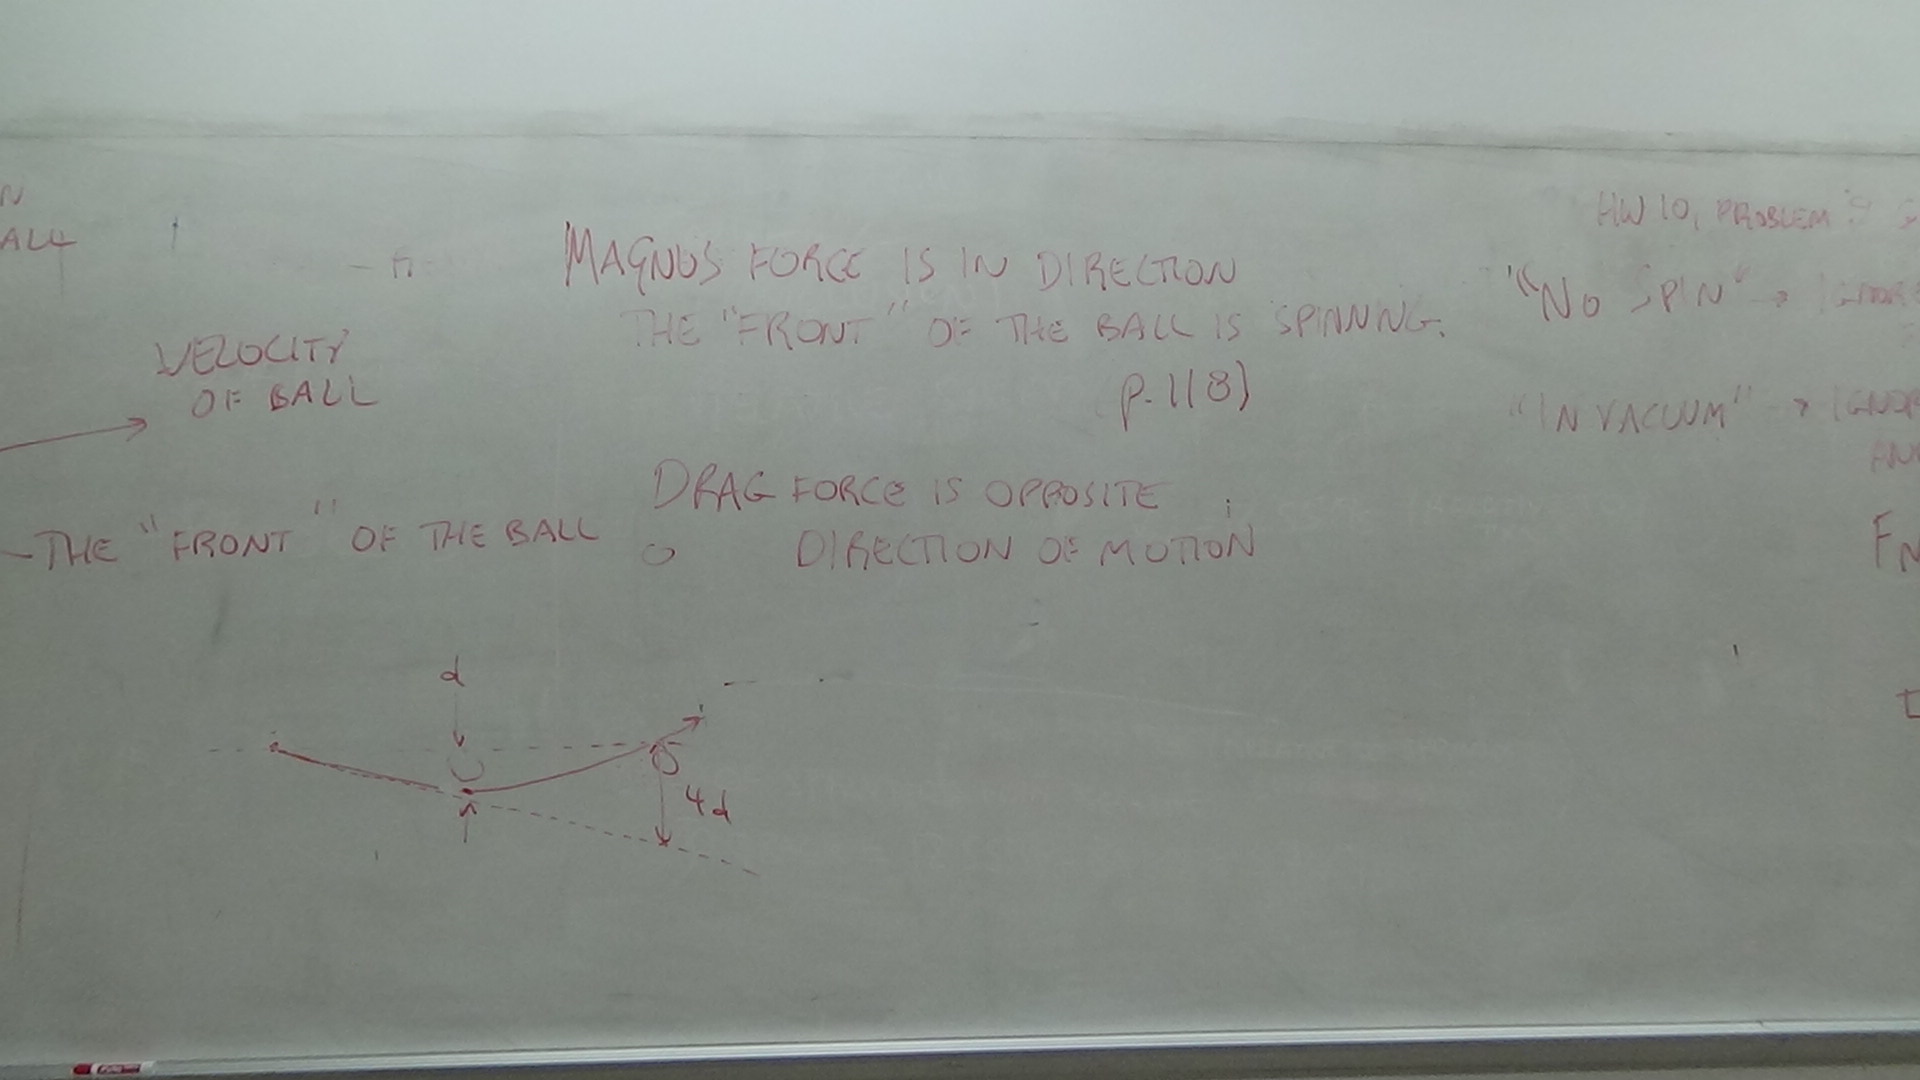 N
ALL
VELOCITY
OF BALL
THE "FRONT" OF THE BALL
MAGNUS FORCE IS IN DIRECTION
THE "FRONT" OF THE BALL IS SPINNING.
p. 118)
DRAG FORCE IS OPPOSITE
DIRECTION OF MOTION
d
4d
HW 10, PROBLEM
"NO SPIN" →
"IN VACUUM" →